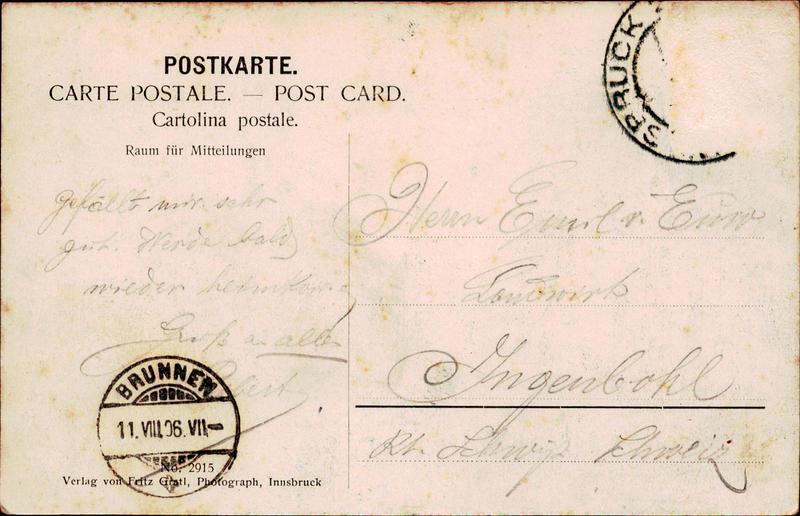 POSTKARTE.
CARTE POSTALE. — POST CARD.
Cartolina postale.
Raum für Mitteilungen
SPRUCK
Gefällt mir sehr
gut. Werde bald
wieder heimkom
Gruß an alle
Herrn Emil v. Euw
Landwirt
Ingenbohl
Kt. Schwyz Schweiz
BRUNNEN
11.VIII.06.VII
No. 2915
Verlag von Fritz Gratl, Photograph, Innsbruck